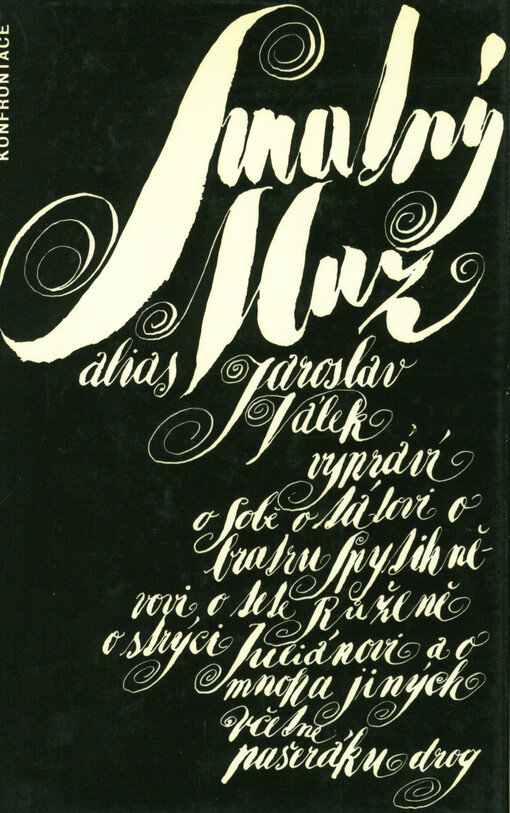 KONFRONTACE
Smutný
Muž
alias Jaroslav
Válek
vypráví
o sobě o tátovi o
bratru Spytihně-
vovi o tetě Růženě
o strýci Juliánovi a o
mnoha jiných
včetně
pašeráku drog